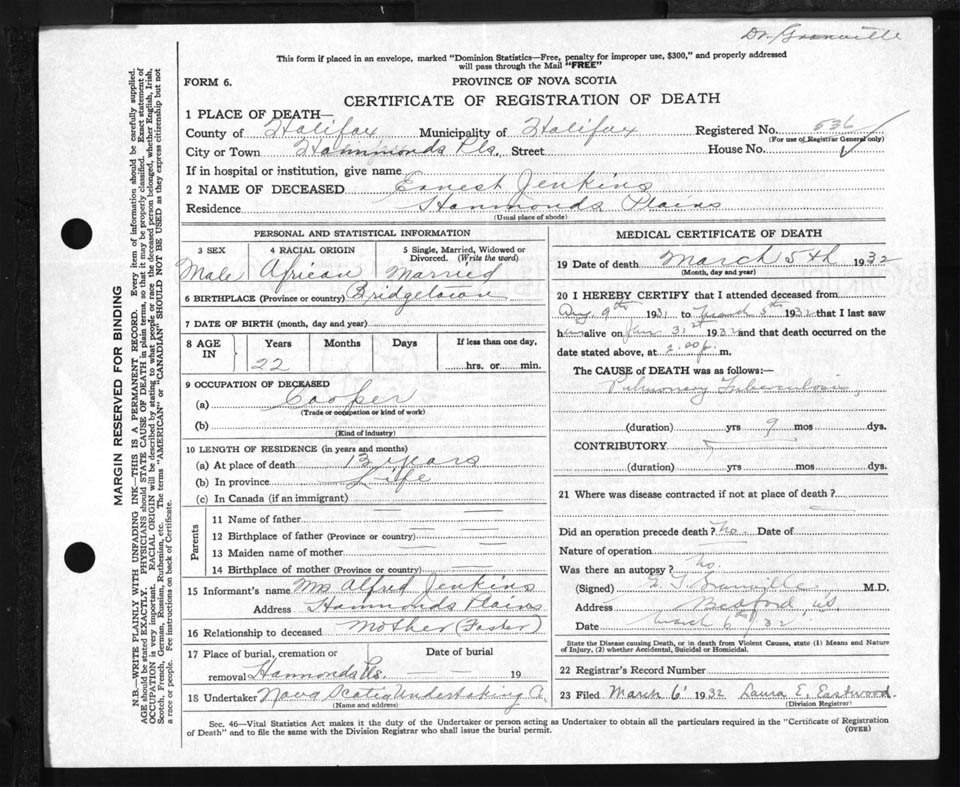 Dr. Granville
This form if placed in an envelope, marked "Dominion Statistics—Free, penalty for improper use, $300," and properly addressed
will pass through the Mail "FREE"
FORM 6.
PROVINCE OF NOVA SCOTIA
CERTIFICATE OF REGISTRATION OF DEATH
1 PLACE OF DEATH—
County of Halifax Municipality of Halifax Registered No. 536
(For use of Registrar General only)
City or Town Hammonds Pls. Street House No.
If in hospital or institution, give name
2 NAME OF DECEASED Ernest Jenkins
Residence Hammonds Plains
(Usual place of abode)
PERSONAL AND STATISTICAL INFORMATION
3 SEX 4 RACIAL ORIGIN 5 Single, Married, Widowed or Divorced. (Write the word)
Male African Married
6 BIRTHPLACE (Province or country) Bridgetown
7 DATE OF BIRTH (month, day and year)
8 AGE IN Years Months Days If less than one day,
22 hrs. or min.
9 OCCUPATION OF DECEASED
(a) Cooper
(Trade or occupation or kind of work)
(b)
(Kind of industry)
10 LENGTH OF RESIDENCE (in years and months)
(a) At place of death 13 years
(b) In province Life
(c) In Canada (if an immigrant)
Parents
11 Name of father
12 Birthplace of father (Province or country)
13 Maiden name of mother
14 Birthplace of mother (Province or country)
15 Informant's name Mrs Alfred Jenkins
Address Hammonds Plains
16 Relationship to deceased Mother (Foster)
17 Place of burial, cremation or Date of burial
removal Hammonds Pls. 19
18 Undertaker Nova Scotia Undertaking
(Name and address)
MEDICAL CERTIFICATE OF DEATH
19 Date of death March 5th 1932
(Month, day and year)
20 I HEREBY CERTIFY that I attended deceased from
Aug. 9th 1931 to March 5th 1932 that I last saw
him alive on Jan 31st 1932 and that death occurred on the
date stated above, at 2.00 p. m.
The CAUSE of DEATH was as follows:—
Pulmonary Tuberculosis,
(duration) yrs 9 mos dys.
CONTRIBUTORY
(duration) yrs. mos. dys.
21 Where was disease contracted if not at place of death?
Did an operation precede death? No. Date of
Nature of operation
Was there an autopsy? No.
(Signed) Granville M.D.
Address Bedford, NS
Date March 6th/32
State the Disease causing Death, or in death from Violent Causes, state (1) Means and Nature
of Injury, (2) whether Accidental, Suicidal or Homicidal.
22 Registrar's Record Number
23 Filed March 6' 1932 Laura E. Eastwood.
(Division Registrar)
Sec. 46—Vital Statistics Act makes it the duty of the Undertaker or person acting as Undertaker to obtain all the particulars required in the "Certificate of Registration
of Death" and to file the same with the Division Registrar who shall issue the burial permit.
(OVER)
MARGIN RESERVED FOR BINDING
N.B.—WRITE PLAINLY WITH UNFADING INK—THIS IS A PERMANENT RECORD. Every item of information should be carefully supplied.
AGE should be stated EXACTLY. PHYSICIANS should STATE CAUSE OF DEATH in plain terms, so that it may be properly classified. Exact statement of
OCCUPATION is very important. RACIAL ORIGIN will be described by stating to what people or race the deceased person belonged, whether English, Irish,
Scotch, French, German, Russian, Ruthenian, etc. The terms "AMERICAN" or "CANADIAN" SHOULD NOT BE USED as they express citizenship but not
a race or people. Fee instructions on back of Certificate.